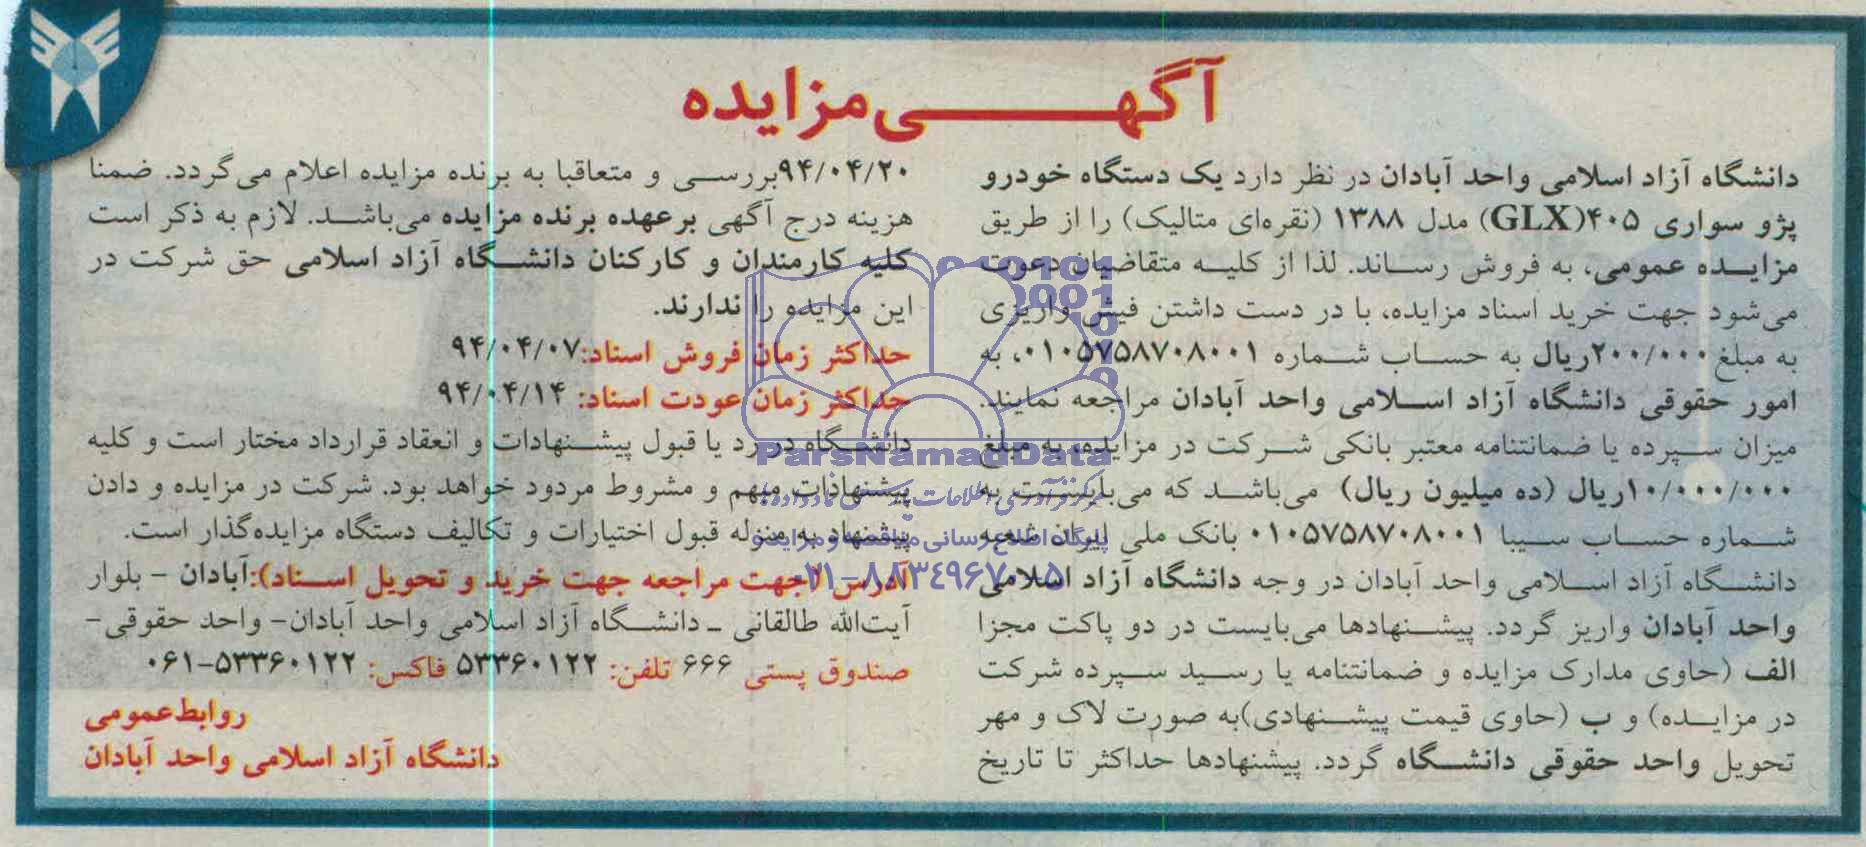 آگهی مزایده
دانشگاه آزاد اسلامی واحد آبادان در نظر دارد یک دستگاه خودرو
پژو سواری ۴۰۵(GLX) مدل ۱۳۸۸ (نقره‌ای متالیک) را از طریق
مزایده عمومی، به فروش رساند. لذا از کلیه متقاضیان دعوت
می‌شود جهت خرید اسناد مزایده، با در دست داشتن فیش واریزی
به مبلغ ۲۰۰/۰۰۰ریال به حساب شماره ۰۱۰۵۷۵۸۷۰۸۰۰۱، به
امور حقوقی دانشگاه آزاد اسلامی واحد آبادان مراجعه نمایند.
میزان سپرده یا ضمانتنامه معتبر بانکی شرکت در مزایده، به مبلغ
۱۰/۰۰۰/۰۰۰ریال (ده میلیون ریال) می‌باشد که می‌بایست به
شماره حساب سیبا ۰۱۰۵۷۵۸۷۰۸۰۰۱ بانک ملی ایران شعبه
دانشگاه آزاد اسلامی واحد آبادان در وجه دانشگاه آزاد اسلامی
واحد آبادان واریز گردد. پیشنهادها می‌بایست در دو پاکت مجزا
الف (حاوی مدارک مزایده و ضمانتنامه یا رسید سپرده شرکت
در مزایده) و ب (حاوی قیمت پیشنهادی)به صورت لاک و مهر
تحویل واحد حقوقی دانشگاه گردد. پیشنهادها حداکثر تا تاریخ
۹۴/۰۴/۲۰بررسی و متعاقبا به برنده مزایده اعلام می‌گردد. ضمنا
هزینه درج آگهی برعهده برنده مزایده می‌باشد. لازم به ذکر است
کلیه کارمندان و کارکنان دانشگاه آزاد اسلامی حق شرکت در
این مزایده را ندارند.
حداکثر زمان فروش اسناد:۹۴/۰۴/۰۷
حداکثر زمان عودت اسناد: ۹۴/۰۴/۱۴
دانشگاه در رد یا قبول پیشنهادات و انعقاد قرارداد مختار است و کلیه
پیشنهادات مبهم و مشروط مردود خواهد بود. شرکت در مزایده و دادن
پیشنهاد به منزله قبول اختیارات و تکالیف دستگاه مزایده‌گذار است.
آدرس (جهت مراجعه جهت خرید و تحویل اسناد):آبادان - بلوار
آیت‌الله طالقانی ـ دانشگاه آزاد اسلامی واحد آبادان- واحد حقوقی-
صندوق پستی ۶۶۶ تلفن: ۵۳۳۶۰۱۲۲ فاکس: ۵۳۳۶۰۱۲۲-۰۶۱
روابط‌عمومی
دانشگاه آزاد اسلامی واحد آبادان
ParsNamadData
پایگاه اطلاع رسانی مناقصه و مزایده